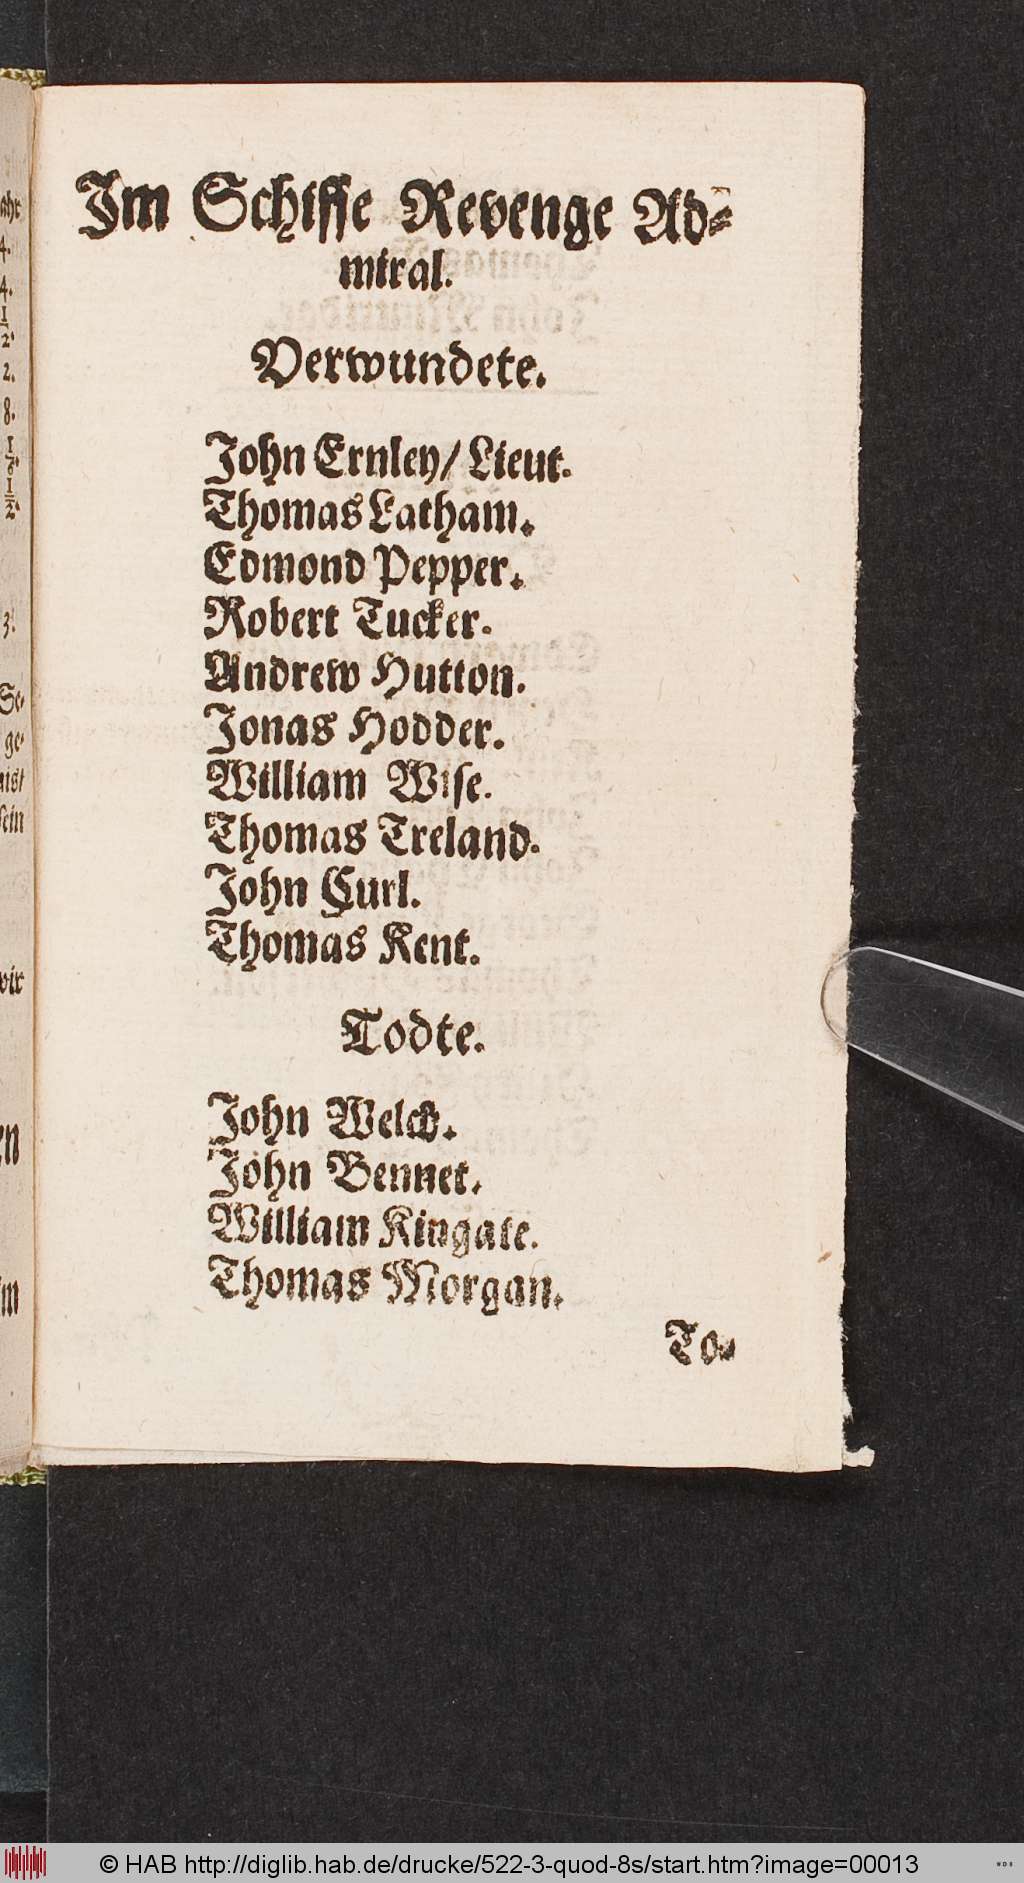 Im Schiffe Revenge Ad-
miral.
Verwundete.
John Ernley/ Lieut.
Thomas Latham.
Edmond Pepper.
Robert Tucker.
Andrew Hutton.
Jonas Hodder.
William Wise.
Thomas Treland.
John Curl.
Thomas Kent.
Todte.
John Welch.
John Bennet.
William Kingate.
Thomas Morgan.
To-
© HAB http://diglib.hab.de/drucke/522-3-quod-8s/start.htm?image=00013